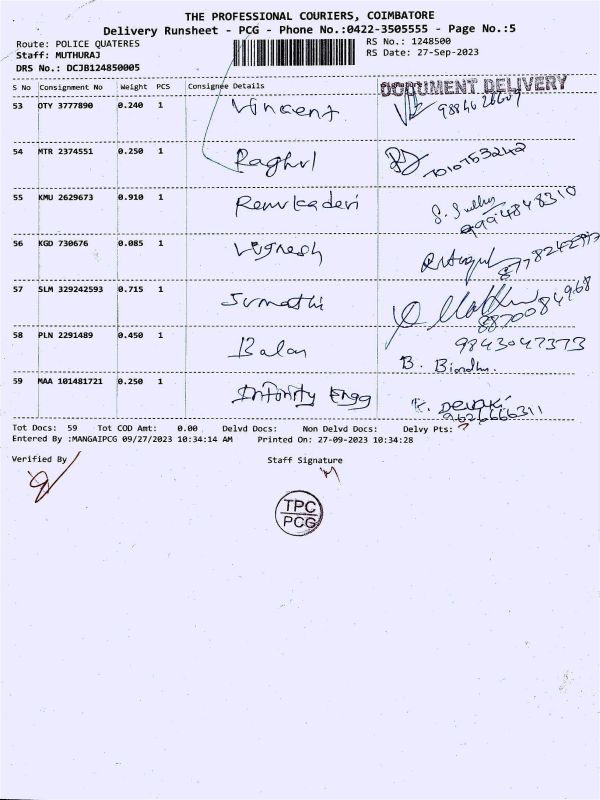 THE PROFESSIONAL COURIERS, COIMBATORE
Delivery Runsheet - PCG - Phone No.:0422-3505555 - Page No.:5
Route: POLICE QUATERES RS No.: 1248500
Staff: MUTHURAJ RS Date: 27-Sep-2023
DRS No.: DCJB124850005
S No Consignment No Weight PCS Consignee Details DOCUMENT DELIVERY
53 OTY 3777890 0.240 1 Vincent
54 MTR 2374551 0.250 1 Raghul
55 KMU 2629673 0.910 1 Renukadevi 9994848310
56 KGD 730676 0.085 1 Vignesh
57 SLM 329242593 0.715 1 Sumathi 8870084968
58 PLN 2291489 0.450 1 Balan 9843047373
B. Bindhu.
59 MAA 101481721 0.250 1 Infinity Engg K. Devaki
9626666311
Tot Docs: 59 Tot COD Amt: 0.00 Delvd Docs: Non Delvd Docs: Delvy Pts: 7
Entered By :MANGAIPCG 09/27/2023 10:34:14 AM Printed On: 27-09-2023 10:34:28
Verified By Staff Signature
TPC
PCG